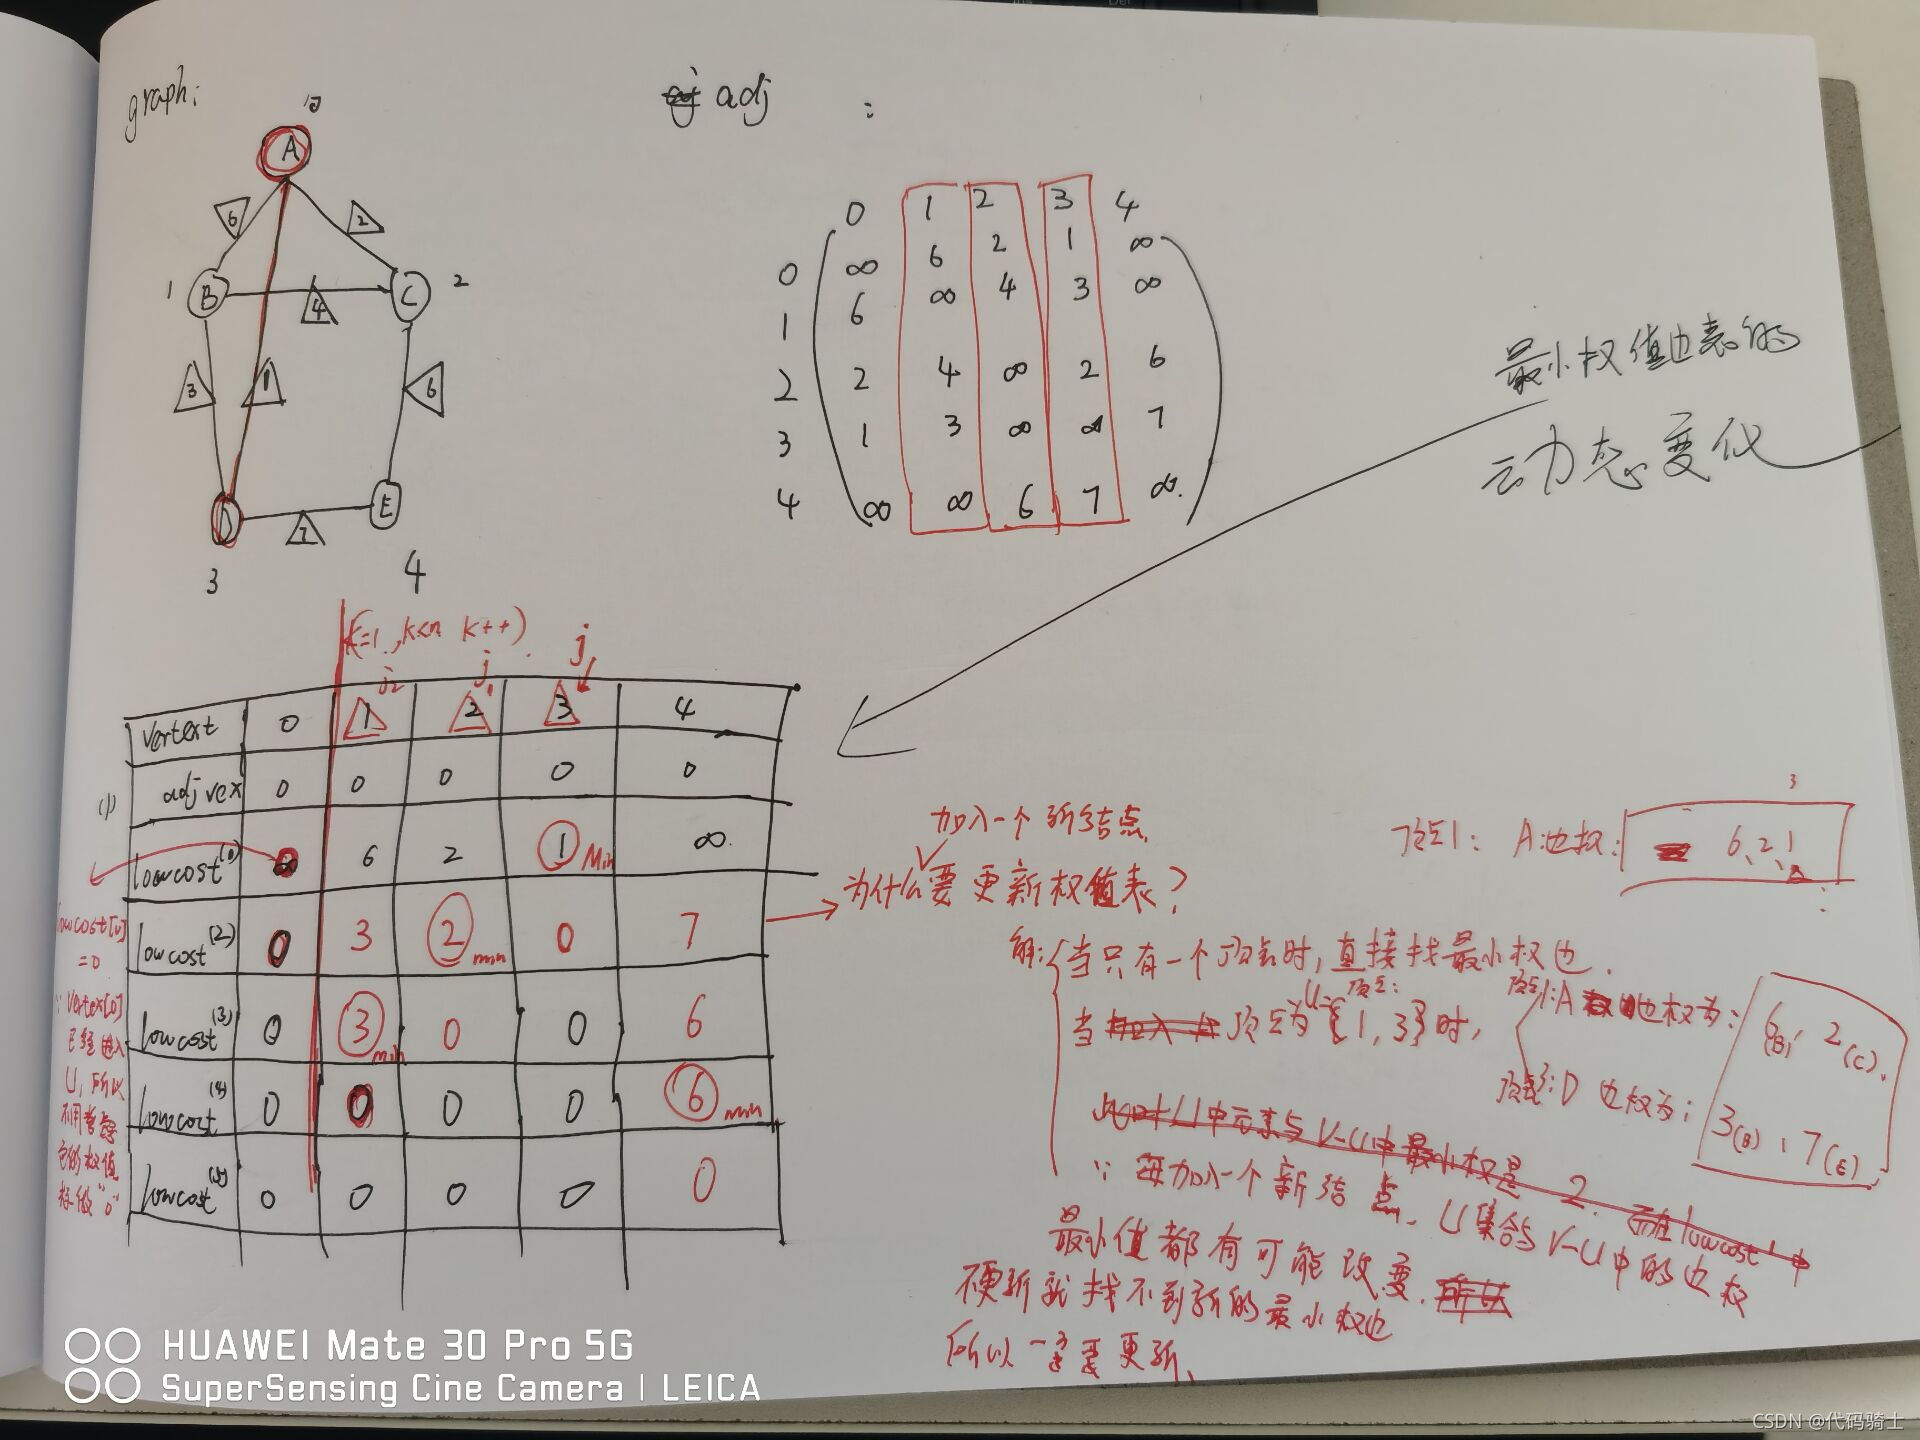 graph:
adj :
A
6
2
1
B
C
2
4
3
1
6
D
E
7
3
4
0 1 2 3 4
0 ∞ 6 2 1 ∞
1 6 ∞ 4 3 ∞
2 2 4 ∞ 2 6
3 1 3 ∞ ∞ 7
4 ∞ ∞ 6 7 ∞.
最小权值边表的
动态变化
(k=1, k<n k++)
j2 j1 j
Vertext 0 1 2 3 4
(1) adjvex 0 0 0 0 0
lowcost(1) ∞ 6 2 1 Min ∞.
lowcost(2) 0 3 2 min 0 7
lowcost(3) 0 3 min 0 0 6
lowcost(4) 0 0 0 0 6 min
lowcost(5) 0 0 0 0 0
lowcost[0]
=0
∵ Vertex[0]
已经进入
U,所以
它的权值
标做"0"
加入一个新结点
为什么要更新权值表?
顶点1: A边权: 6、2、1
3
解: 当只有一个顶点时,直接找最小权边.
当加入 顶点为U={1,3}时,
顶点:
顶点1:A 边权为: 6(B), 2(C).
顶点3:D 边权为: 3(B)、7(E)
U中元素与V-U中最小权是 2. 而在lowcost1中
∵ 每加入一个新结点、U集合与V-U中的边权
最小值都有可能改变. 所以
不更新就找不到新的最小权边
所以一定要更新、
HUAWEI Mate 30 Pro 5G
SuperSensing Cine Camera | LEICA
CSDN @代码骑士